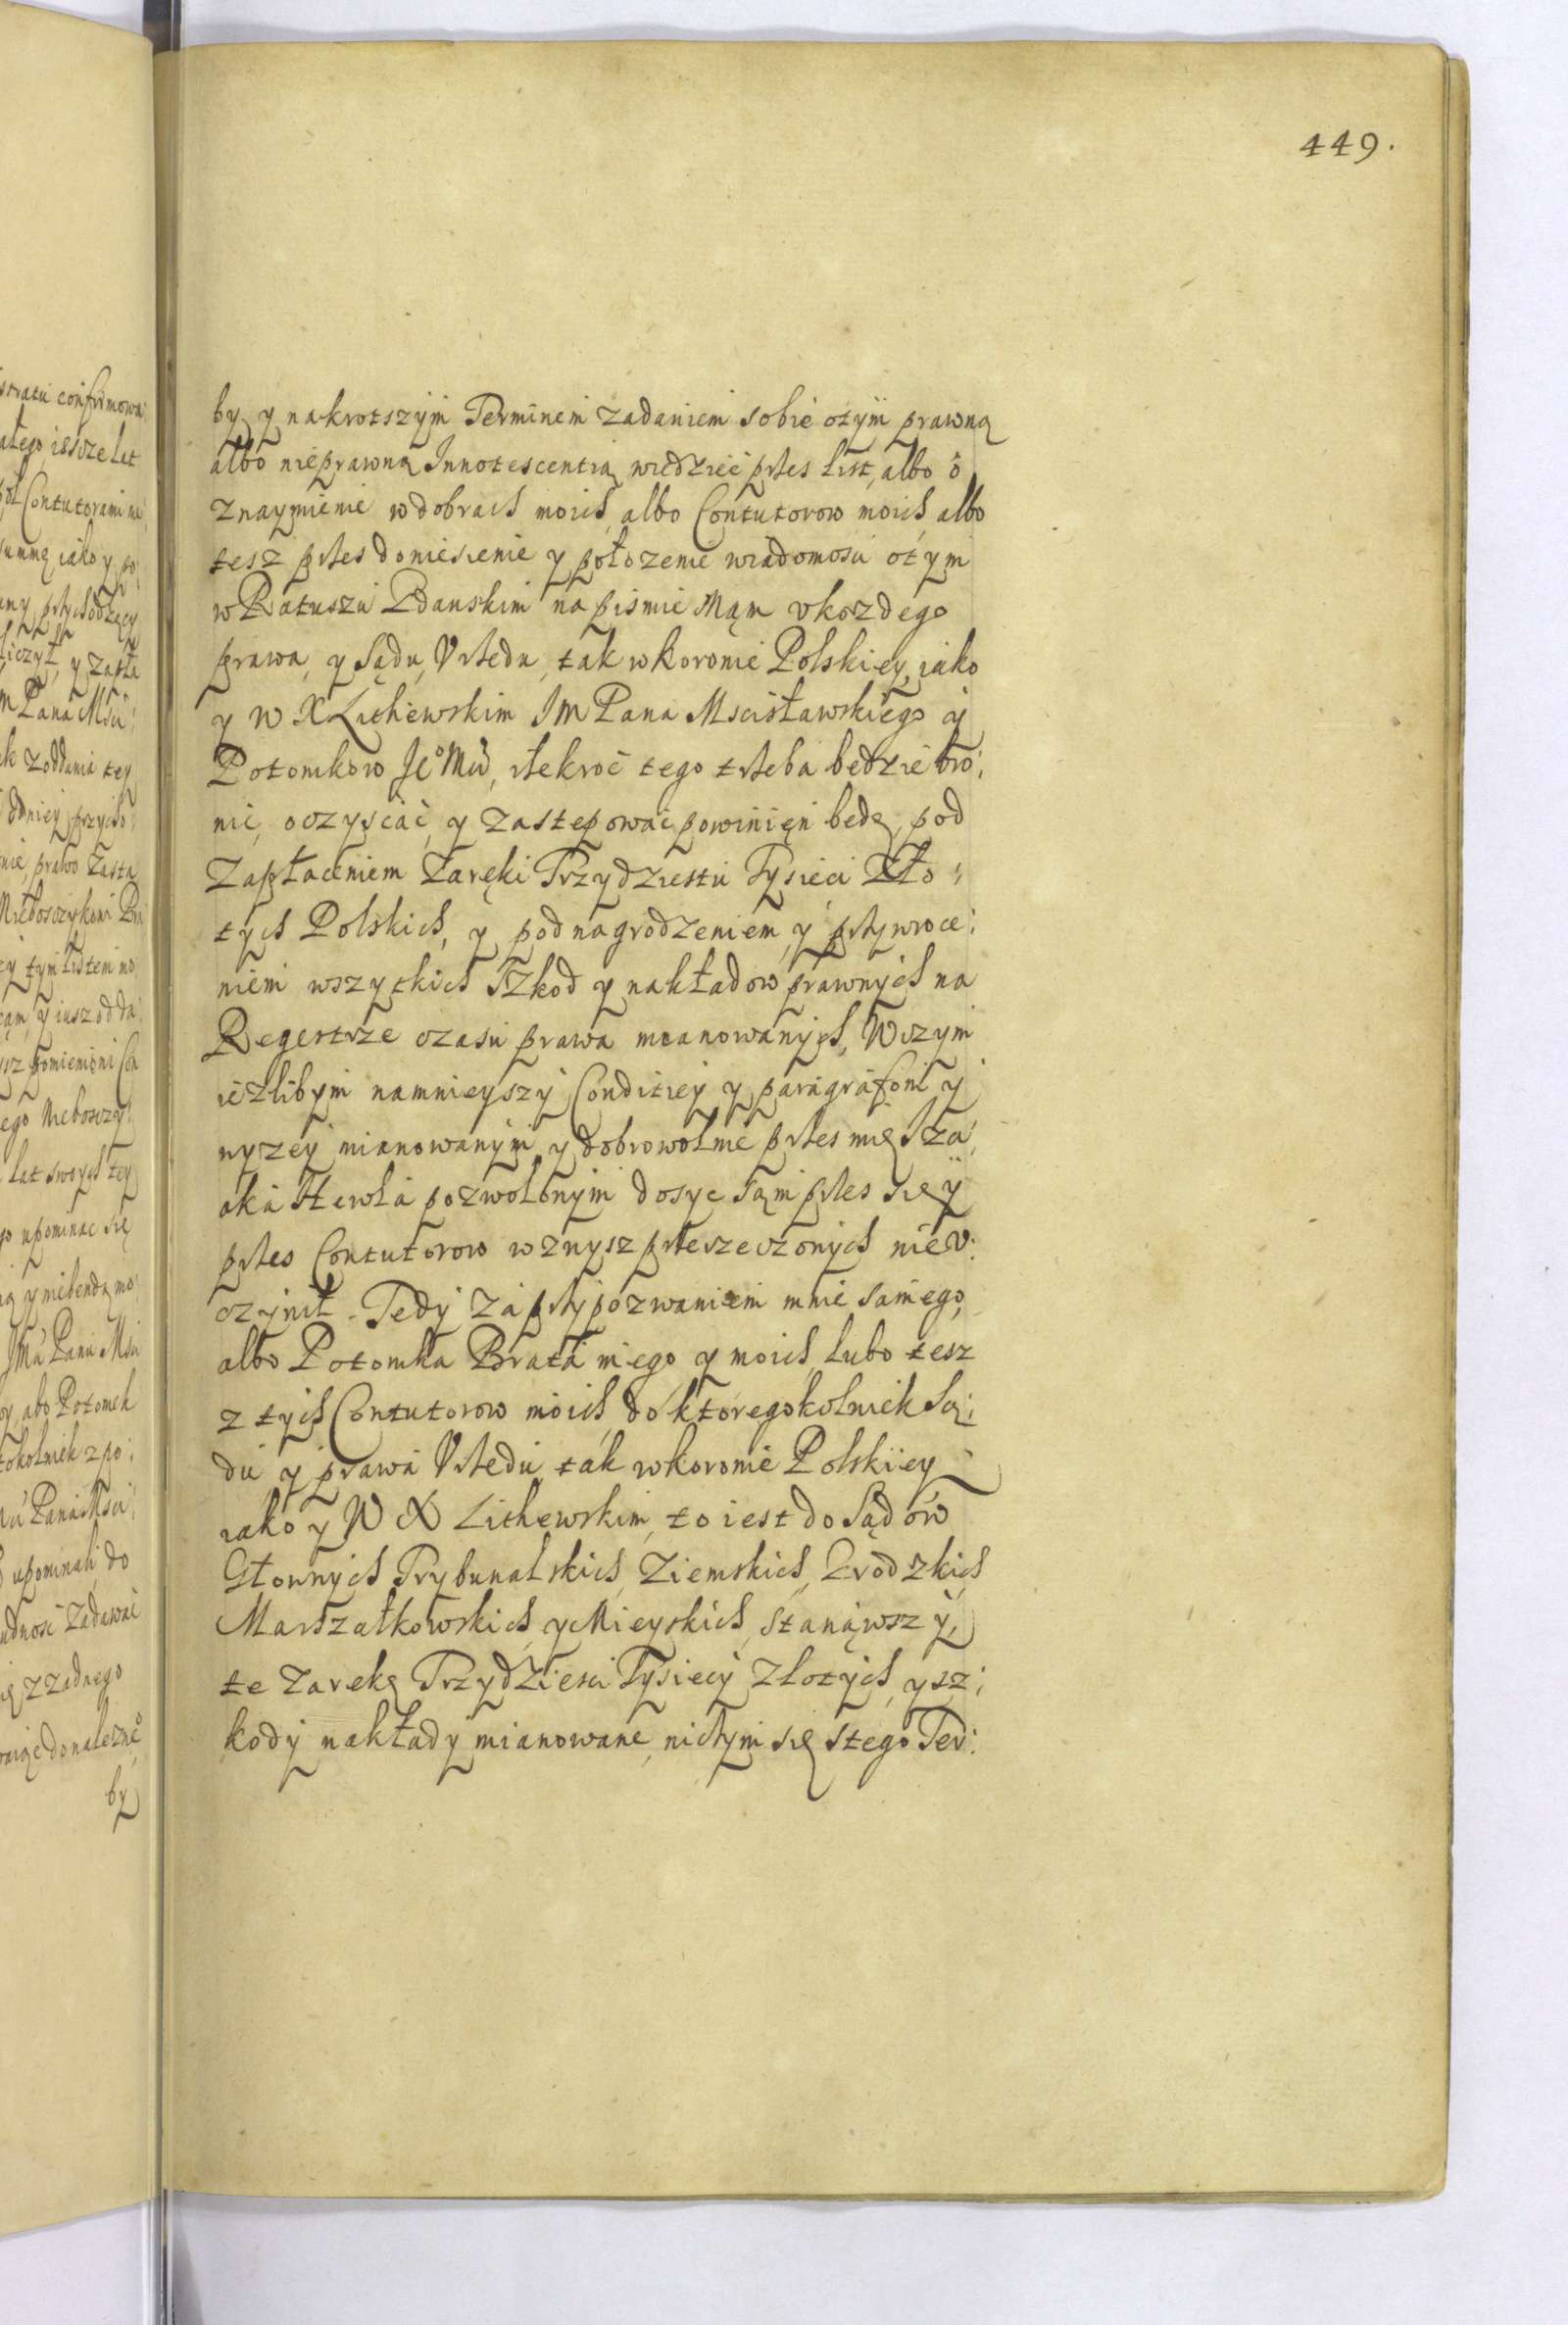 449.
stratu confirmowa:
ałego, iescze let
Contutorami nie
summę iako y po
any przychodzący
liczył, y zapła
m Pana Msci:
ak zoddania tey
dniey, przycho:
prawo Zasta
Niebosczykowi
tym listem mo
y iusz odda:
sz pomienioni Con
ego Nieboszczy:
lat swoych tey
go upominac się
y nie bendą mo:
JMa Pana Msci
abo Potomek
tokolwiek z po:
Pana Msci:
upominali, do
udnosc Zadawac
z Zadnego
donalezne
by
by y nakrotszym Terminem zadaniem sobie otym prawną
albo nieprawną Innotescentią, wiedziec przes list, albo o
znaymienie w dobrach moich, albo Contutorow moich, albo
tesz przes doniesienie y połozenie wiadomosci otym
w Ratuszu Gdanskim na pismie Mąm v kozdego
prawa, y Sądu, Vrzedu, tak w koronie Polskiey, iako
y W X Lithewskim JM Pana Mscisławskiego y
Potomkow Je° Mci, ilekroc tego trzeba bedzie bro:
nic, oczyscac, y Zastepowac powinięn bedę, pod
Zapłaceniem Zaręki Trzydziestu Tysieci Zło:
tych Polskich, y pod nagrodzeniem, y przywroce:
niem wszytkich Szkod y nakładow prawnych na
Regestrze czasu prawa mianowanych, W czym
iezlibym namnieyszy Conditiey y paragrafom y
nyzey mianowanym, y dobrowolnie przes mię Iza:
aka Hewla pozwolonym dosyc sąm przes się y
przes Contutorow wznysz przeszeczonych nie v:
czynił. Tedy za przypozwaniem mnie samego,
albo Potomka Brata mego y moich, lubo tesz
z tych Contutorow moich, do ktoregokolwiek Są:
du y prawa Vrzedu, tak w koronie Polskiey
iako y W X Lithewskim, to iest do Sądow
Głownych Trybunalskich, Ziemskich, Grodzkich,
Marszałkowskich, y Mieyskich, Stanąwszy,
te Zarekę Trzydziesci Tysiecy Złotych, y sz:
kody nakłady mianowane, niczym się stego Ter: